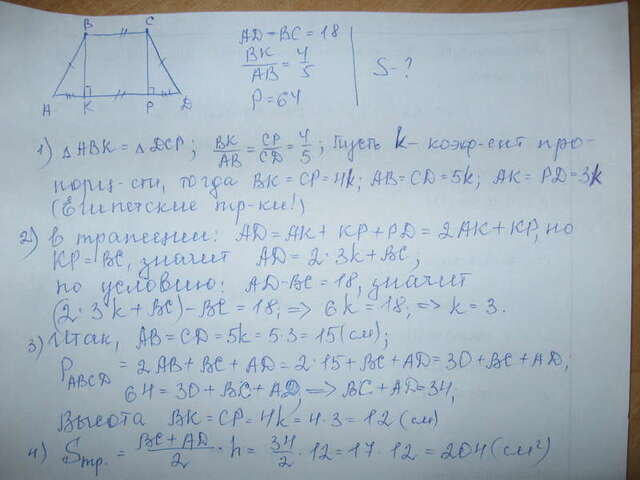 B C
A K P D
AD-BC=18
BK/AB = 4/5
P=64
S-?
1) △ABK=△DCP; BK/AB=CP/CD=4/5; Пусть k-коэф-ент про-
порц-сти, тогда BK=CP=4k; AB=CD=5k; AK=PD=3k
(Египетские тр-ки!)
2) В трапеции: AD=AK+KP+PD=2AK+KP, но
KP=BC, значит AD=2·3k+BC,
по условию: AD-BC=18, значит
(2·3k+BC)-BC=18, ⇒ 6k=18, ⇒ k=3.
3) Итак, AB=CD=5k=5·3=15(см);
P ABCD =2AB+BC+AD=2·15+BC+AD=30+BC+AD,
64=30+BC+AD, ⇒ BC+AD=34,
Высота BK=CP=4k=4·3=12(см)
4) Sтр.=BC+AD/2·h=34/2·12=17·12=204(см²)